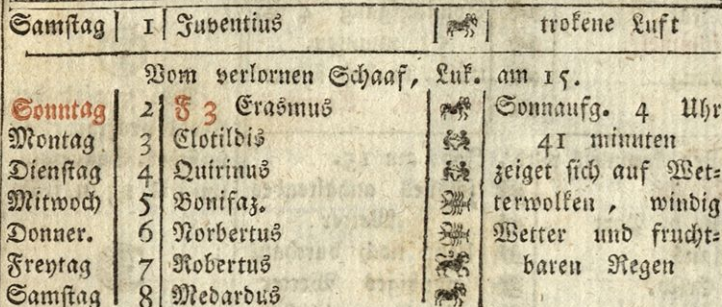 Samstag 1 Juventius trokene Luft
Vom verlornen Schaaf, Luk. am 15.
Sonntag 2 F 3 Erasmus Sonnaufg. 4 Uhr
Montag 3 Clotildis 41 minuten
Dienstag 4 Quirinus zeiget sich auf Wet-
Mitwoch 5 Bonifaz. terwolken, windig
Donner. 6 Norbertus Wetter und frucht-
Freytag 7 Robertus baren Regen
Samstag 8 Medardus